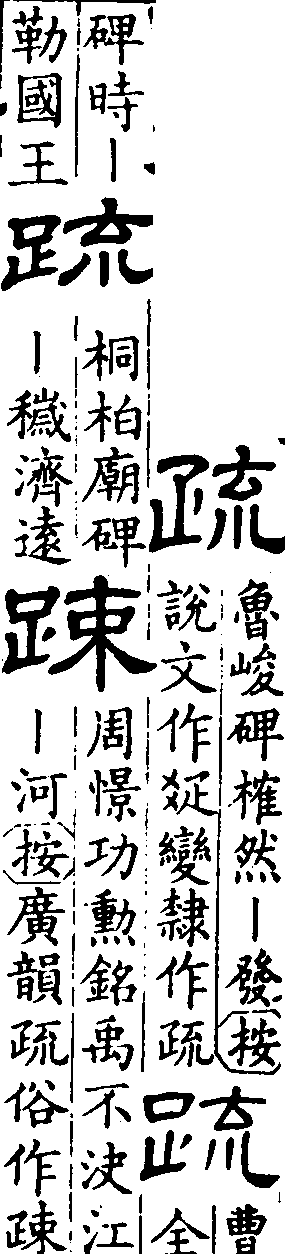 疏
魯峻碑榷然丨發按
說文作變隸作疏
䟽
曹
全
碑時丨
勒國王
䟽
桐柏廟碑
丨穢濟遠
踈
周憬功勳銘禹不決江
丨河按廣韻疏俗作踈